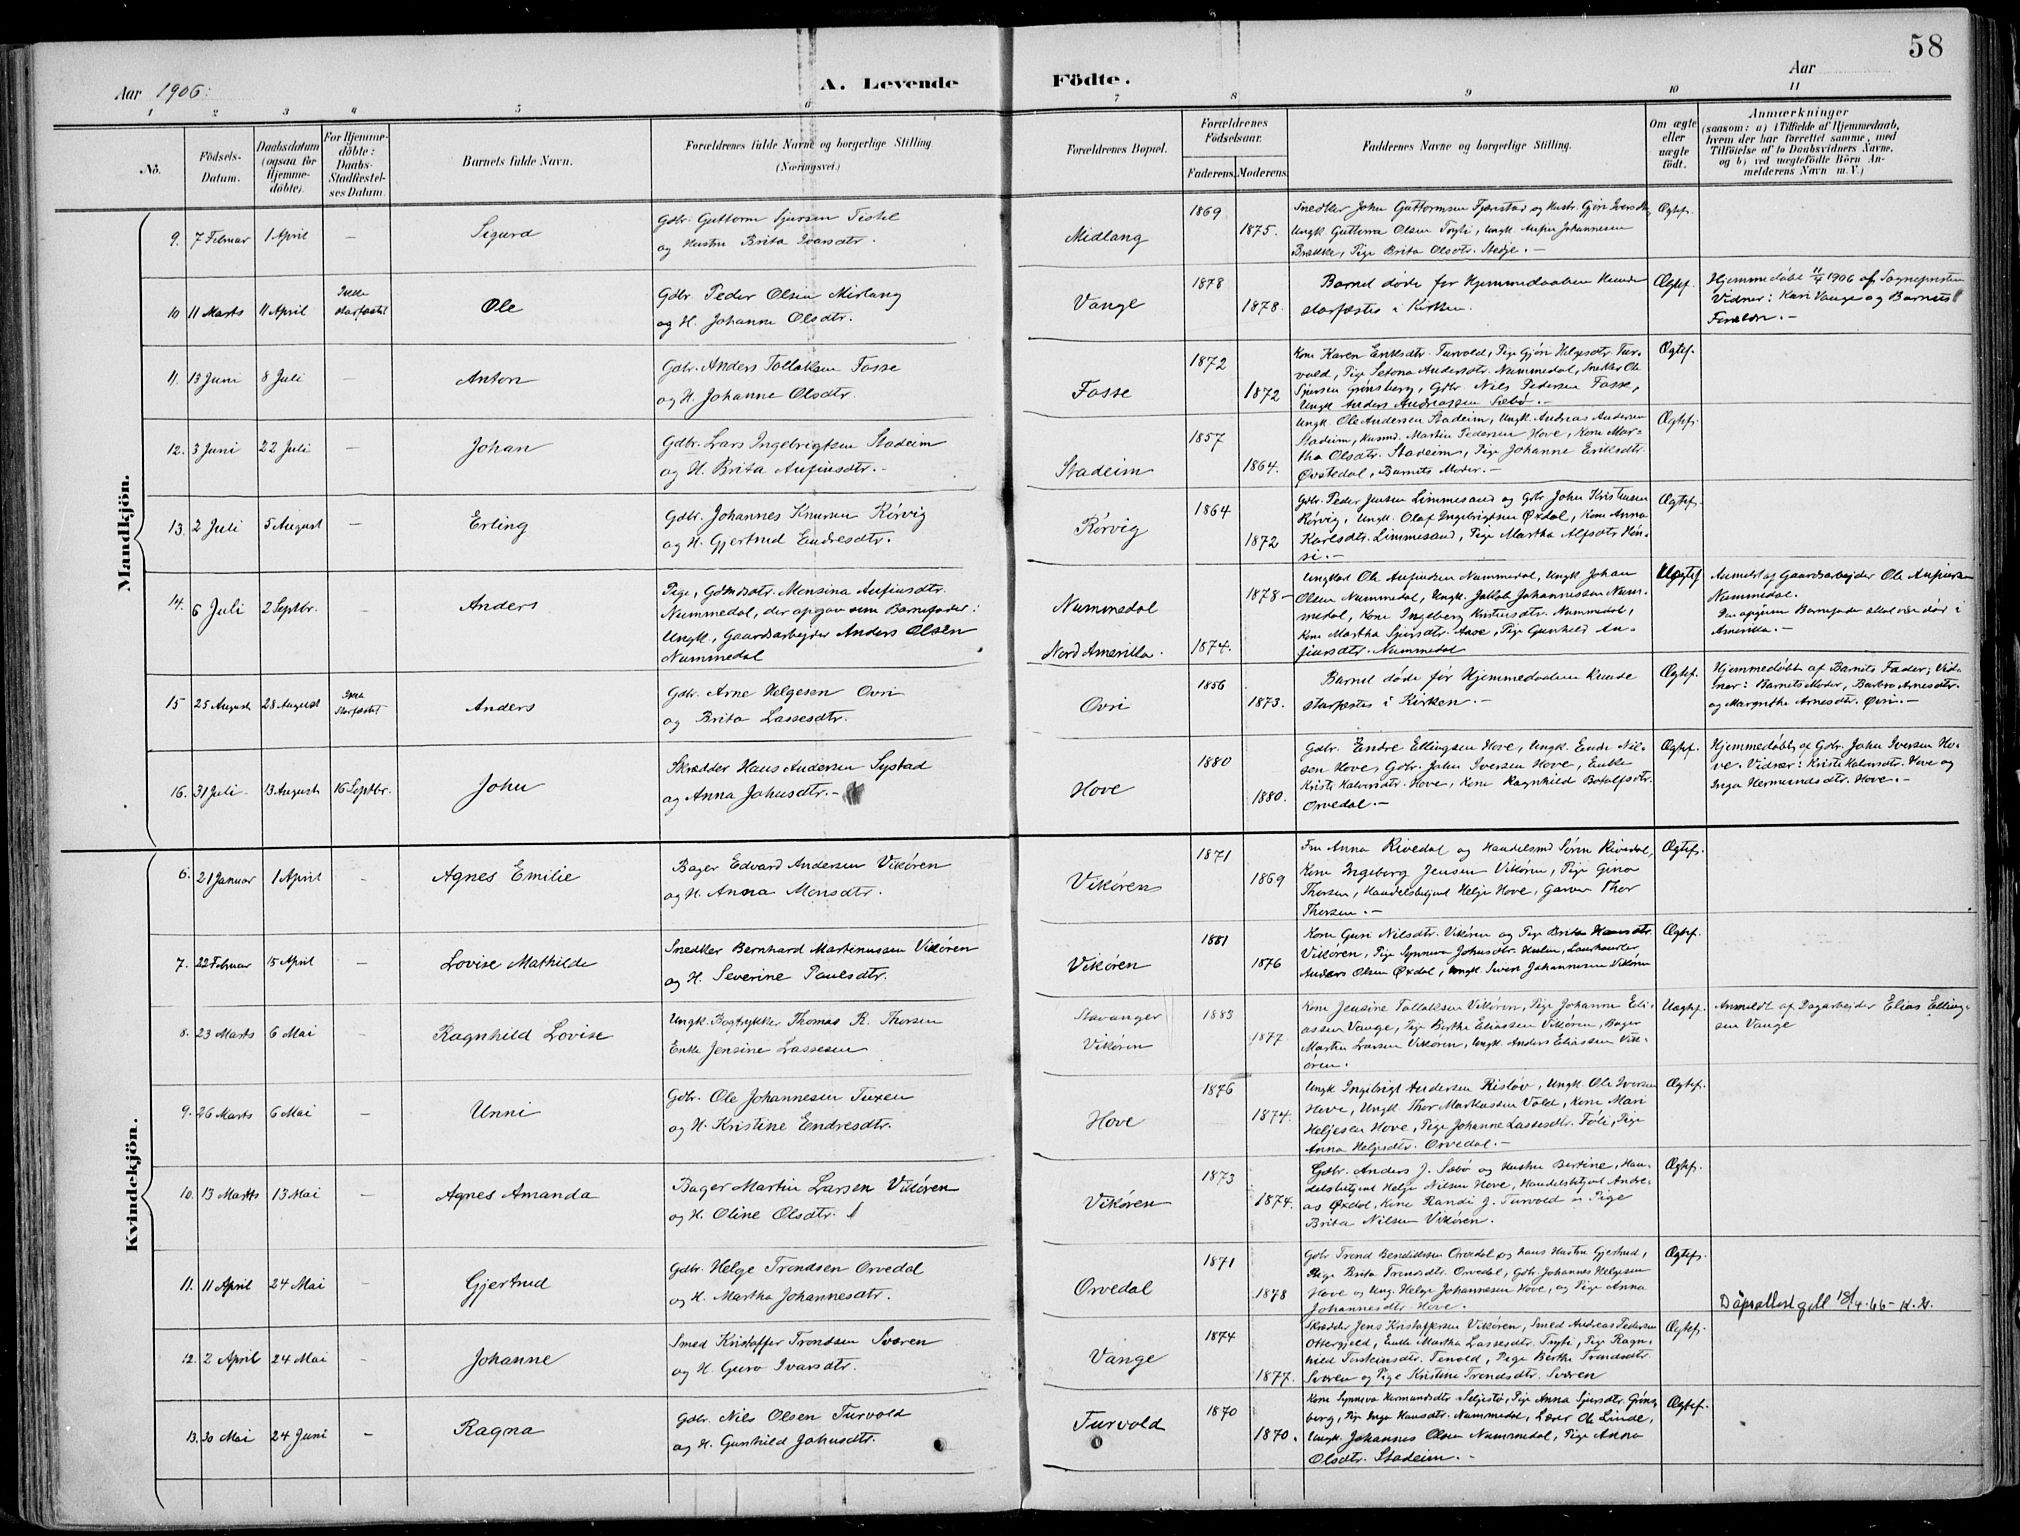 58
Aar 1906.
A. Levende Födte.
Aar
1 2 3 4 5 6 7 8 9 10 11
No.
Födsels-Datum.
Daabsdatum (ogsaa for Hjemme-döbte).
For Hjemme-döbte: Daabs-Stadfæstel-ses Datum.
Barnets fulde Navn.
Forældrenes fulde Navne og borgerlige Stilling (Næringsvei.)
Forældrenes Bopæl.
Forældrenes Födselsaar.
Faderens. Moderens.
Faddernes Navne og borgerlige Stilling.
Om ægte eller uægte födt.
Anmærkninger
(saasom: a) i Tilfælde af Hjemmedaab,
hvem der har forrettet samme, med
Tilföielse af to Daabsvidners Navne,
og b) ved uægtefödte Börn An-
melderens Navn m. V.)
Mandkjön.
9. 7 Februar 1 April — Sigurd
Gdbr. Guttorm Sjursen Tistel
og Hustru Brita Ivarsdtr.
Midlang
1869
1875.
Snedker John Guttormsen Fjærstad og Hustr. Gjøri Iversdtr,
Ungk. Guttorm Olsen Tryti, Ungk. Anfin Johannesen
Brække, Pige Brita Olsdtr. Stedje. —
Ægtef.
10 11 Marts 11 April Ikke stadfæstet Ole
Gdbr Peder Olsen Midlang
og H. Johanne Olsdtr.
Vange
1878
1878.
Barnet døde før Hjemmedaaben kunde
stadfæstes i Kirken.
Ægtef.
Hjemmedøbt 11/4 1906 af Sognepresten
Vidner: Kari Vange og Barnets
Forældre. —
11. 13 Juni 8 Juli — Anton
Gdbr. Anders Tollaksen Fosse
og H. Johanne Olsdtr.
Fosse
1872
1872
Kone Karen Eriksdtr. Turvold, Pige Gjøri Helgesdtr. Tur-
vold, Pige Setona Andersdtr. Nummedal, Snedker Ole
Sjursen Grønsberg, Gdbr Nils Pedersen Fosse,
Ungk Anders Andreassen Sæbø. —
Ægtef.
12. 3 Juni 22 Juli — Johan
Gdbr. Lars Ingebrigtsen Stadeim
og H. Brita Anfinsdtr. —
Stadeim
1857
1864.
Ungk. Ole Andersen Stadeim, Ungk. Andreas Andersen
Stadeim, Husmd. Martin Pedersen Hove, Kone Mar-
tha Olsdtr. Stadeim, Pige Johanne Eriksdtr.
Øvstedal, Barnets Moder. —
Ægtef.
13. 2 Juli 5 August — Erling
Gdbr. Johannes Knutsen Rörvig
og H. Gjertrud Endresdtr.
Rörvig
1864
1872
Gdbr. Peder Jensen Limmesand og Gdbr John Kristensen
Rörvig, Ungk. Olaf Ingebrigtsen Øxdal, Kone Anna
Karlsdtr. Limmesand, Pige Martha Alfsdtr Hön-
si. —
Ægtef.
14. 6 Juli 2 Septbr. Anders
Pige, Gdmdsdtr. Monsina Anfinsdtr.
Nummedal, der opgav som Barnefader:
Ungk, Gaardsarbejder Anders Olsen
Nummedal
Nummedal
Nord Amerika.
1878 —
1874.
Ungkal Ole Anfindsen Nummedal, Ungk Johan
Olsen Nummedal, Ungk. Jakob Johannessen Num-
medal, Kone Ingeborg Kristensdtr. Nummedal,
Kone Martha Sjursdtr. Aase, Pige Gunhild An-
finsdtr. Nummedal
Uægtef.
Anmeldt af Gaardsarbejder Ole Anfinsen
Nummedal.
Den opgivne Barnefader skal være død i
Amerika. —
15 25 August 28 August Ikke stadfæstet Anders
Gdbr. Arne Helgesen Ovri
og Brita Lassesdtr.
Ovri
1856
1873.
Barnet døde før Hjemmedaaben kunde
stadfæstes i Kirken. —
Ægtef.
Hjemmedøbt af Barnets Fader; Vid-
ner: Barnets Moder, Barbro Arnesdtr.
og Margrethe Arnesdtr. Øvri. —
16. 31 Juli 13 August 16 Septbr. John
Skrædder Hans Andersen Systad
og Anna Johnsdtr. —
Hove
1880
1880.
Gdbr. Endre Ellingsen Hove, Ungk. Endre Nil-
sen Hove, Gdbr. John Iversen Hove, Enke
Kristi Halvardtr. Hove, Kone Ragnhild Botolfsdtr.
Orvedal. —
Ægtef.
Hjemmedøbt af Gdbr. John Iversen Ho-
ve. Vidner: Kristi Halvardtr. Hove og
Inga Hermundsdtr. Hove. —
Kvindekjön.
6. 21 Januar 1 April — Agnes Emilie
Bager Edvard Andersen Vikören
og H. Anna Monsdtr.
Vikören
1871
1869
Fru Anna Rivedal og Handelsmd Sörin Rivedal,
Kone Ingeborg Jensen Vikören, Pige Gina
Thorsen, Handelsbetjent Helge Hove, Garver Thor
Thorsen. —
Ægtef.
7. 22 Februar 15 April — Lovise Mathilde
Snedker Bernhard Martinussen Vikören
og H. Severine Paulsdtr.
Vikören
1881
1876
Kone Guri Nilsdtr. Vikören og Pige Brita Hansdtr
Vikören, Pige Synneva Johnsdtr. Hulen, Landhandler
Anders Olsen Øxdal, Ungk. Iver Johannesen Vikören
Ægtef.
8. 23 Marts 6 Mai — Ragnhild Lovise
Ungk. Bogtrykker Thomas R. Thorsen
Enke Jensine Lassesen
Stavanger
Vikören
1883
1877
Kone Jensine Tollaksen Vikören, Pige Johanne Eli-
assen Vange, Pige Berthe Eliassen Vikören, Bager
Martin Larsen Vikören, Ungk. Anders Eliassen Vik-
ören.
Uægtef.
Anmeldt af Dagarbejder Elias Elling-
sen Vange
9. 26 Marts 6 Mai — Unni
Gdbr. Ole Johannesen Tuxen
og H. Kristine Endresdtr.
Hove
1876
1874.
Ungk Ingebrigt Andersen Risløv, Ungk. Ole Iversen
Hove, Ungk Thor Markussen Vold, Kone Mari
Helgesen Hove, Pige Johanne Lassesdtr. Föli, Pige
Anna Helgesdtr. Orvedal. —
Ægtef.
10. 13 Marts 13 Mai — Agnes Amanda
Bager Martin Larsen Vikören
og H. Oline Olsdtr.
Vikören
1873
1874.
Gdbr. Anders J. Sæbø og Hustru Bertine, Han-
delsbetjent Helge Nilsen Hove, Handelsbetjent Andre-
as Øxdal, Kone Randi J. Turvold og Pige
Brita Nilsen Vikören.
Ægtef.
11. 11 April 24 Mai — Gjertrud
Gdbr. Helge Trondsen Orvedal
og H. Martha Johannesdtr.
Orvedal
1871
1878
Gdbr Trond Bendiktsen Orvedal og hans Hustru Gjertrud,
Pige Brita Trondsdtr. Orvedal, Gdbr. Johannes Helgesen
Hove og Ung. Helge Johannesen Hove, og Pige Anna
Johannesdtr Hove.
Ægtef.
Dåpsattest gitt 18/4-66 — K.N.
12. 2 April 24 Mai — Johanne
Smed Kristoffer Trondsen Sværen
og H. Guro Ivarsdtr.
Vange
1874
1877.
Skrædder Jens Kristoffersen Vikören, Smed Andreas Pedersen
Ottergjeld, Enke Martha Lassesdtr. Tryti, Pige Ragn-
hild Torsteinsdtr. Tenold, Pige Berthe Trondsdtr.
Sværen og Pige Kristine Trondsdtr. Sværen
Ægtef.
13. 30 Mai 24 Juni — Ragna
Gdbr. Nils Olsen Turvold
og H. Gunhild Johnsdtr.
Turvold
1870
1870.
Kone Synneva Hermundsdtr Seljestø, Pige Anna Sjursdtr. Gröns-
berg, Pige Inga Hansdtr. Nummedal, Lærer Ole Linde,
Ungk. Johannes Olsen Nummedal, Pige Anna
Olsdtr. Stadeim. —
Ægtef.